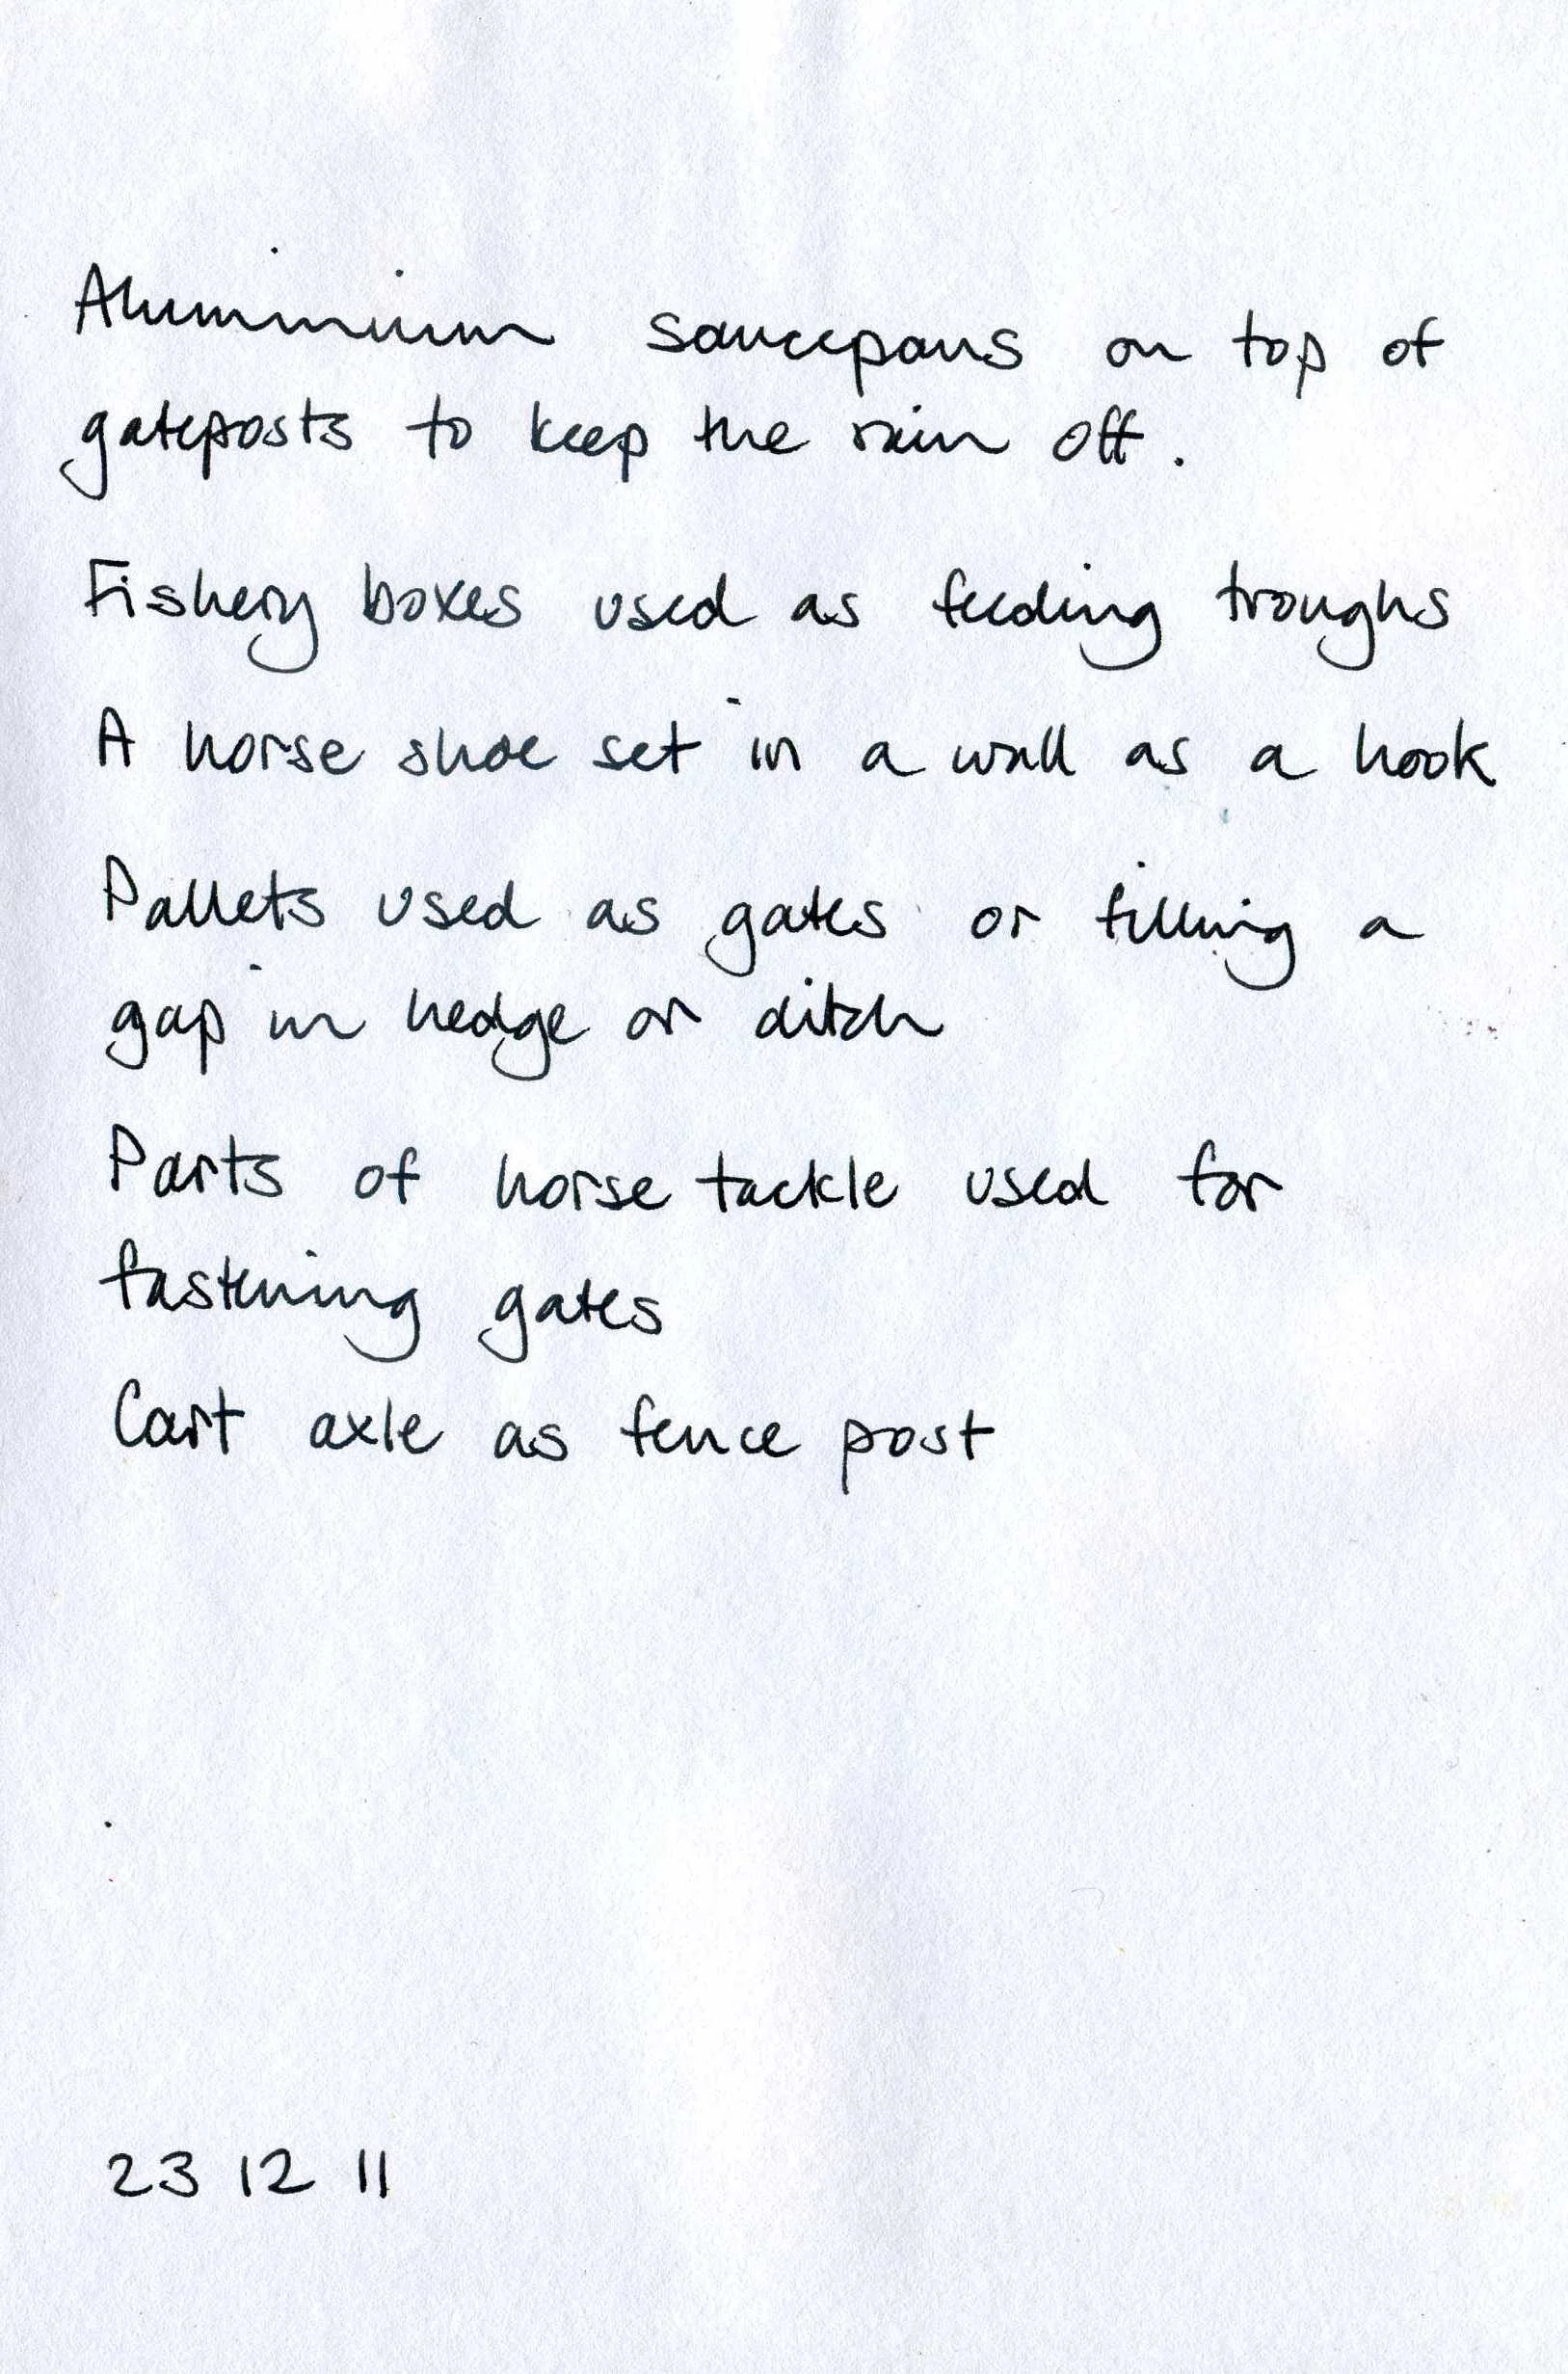 Aluminium saucepans on top of
gateposts to keep the rain off.
Fishery boxes used as feeding troughs
A horse shoe set in a wall as a hook
Pallets used as gates or filling a
gap in hedge or ditch
Parts of horse tackle used for
fastening gates
Cart axle as fence post
23 12 11